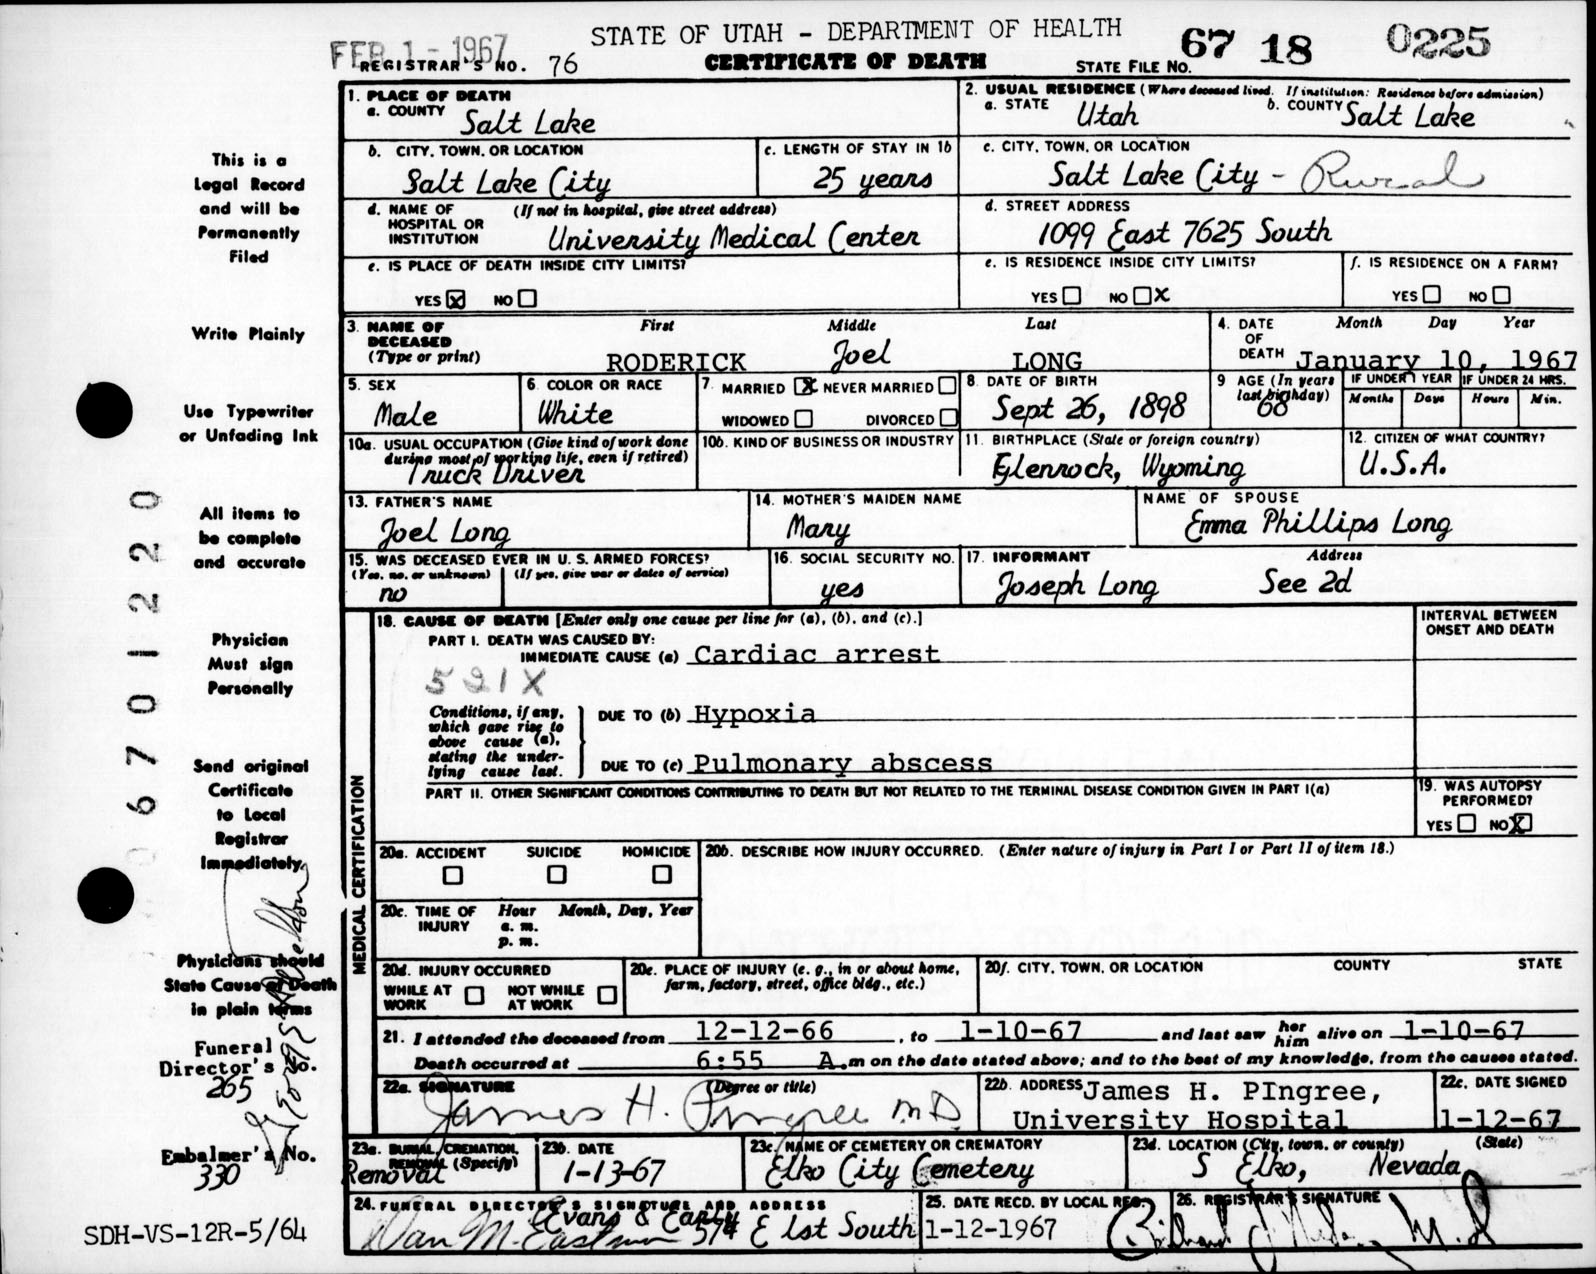 STATE OF UTAH - DEPARTMENT OF HEALTH
FEB 1 - 1967
REGISTRAR'S NO. 76
CERTIFICATE OF DEATH
STATE FILE NO. 67 18 0225
1. PLACE OF DEATH
a. COUNTY Salt Lake
2. USUAL RESIDENCE (Where deceased lived. If institution: Residence before admission)
a. STATE Utah b. COUNTY Salt Lake
b. CITY, TOWN, OR LOCATION Salt Lake City
c. LENGTH OF STAY IN 1b 25 years
c. CITY, TOWN, OR LOCATION Salt Lake City - Rural
d. NAME OF HOSPITAL OR INSTITUTION (If not in hospital, give street address) University Medical Center
d. STREET ADDRESS 1099 East 7625 South
e. IS PLACE OF DEATH INSIDE CITY LIMITS?
YES X NO
e. IS RESIDENCE INSIDE CITY LIMITS?
YES NO X
f. IS RESIDENCE ON A FARM?
YES NO
3. NAME OF DECEASED (Type or print)
First Middle Last
RODERICK Joel LONG
4. DATE OF DEATH
Month Day Year
January 10, 1967
5. SEX Male
6. COLOR OR RACE White
7. MARRIED X NEVER MARRIED
WIDOWED DIVORCED
8. DATE OF BIRTH Sept 26, 1898
9 AGE (In years last birthday) 68
IF UNDER 1 YEAR IF UNDER 24 HRS.
Months Days Hours Min.
10a. USUAL OCCUPATION (Give kind of work done during most of working life, even if retired)
Truck Driver
10b. KIND OF BUSINESS OR INDUSTRY
11. BIRTHPLACE (State or foreign country)
Glenrock, Wyoming
12. CITIZEN OF WHAT COUNTRY?
U.S.A.
13. FATHER'S NAME
Joel Long
14. MOTHER'S MAIDEN NAME
Mary
NAME OF SPOUSE
Emma Phillips Long
15. WAS DECEASED EVER IN U. S. ARMED FORCES?
(Yes, no, or unknown) (If yes, give war or dates of service)
no
16. SOCIAL SECURITY NO.
yes
17. INFORMANT Address
Joseph Long See 2d
MEDICAL CERTIFICATION
18. CAUSE OF DEATH [Enter only one cause per line for (a), (b), and (c).]
INTERVAL BETWEEN ONSET AND DEATH
PART I. DEATH WAS CAUSED BY:
IMMEDIATE CAUSE (a) Cardiac arrest
521X
Conditions, if any, which gave rise to above cause (a), stating the underlying cause last.
DUE TO (b) Hypoxia
DUE TO (c) Pulmonary abscess
PART II. OTHER SIGNIFICANT CONDITIONS CONTRIBUTING TO DEATH BUT NOT RELATED TO THE TERMINAL DISEASE CONDITION GIVEN IN PART I(a)
19. WAS AUTOPSY PERFORMED?
YES NO X
20a. ACCIDENT SUICIDE HOMICIDE
20b. DESCRIBE HOW INJURY OCCURRED. (Enter nature of injury in Part I or Part II of item 18.)
20c. TIME OF INJURY Hour Month, Day, Year
a. m.
p. m.
20d. INJURY OCCURRED
WHILE AT WORK NOT WHILE AT WORK
20e. PLACE OF INJURY (e. g., in or about home, farm, factory, street, office bldg., etc.)
20f. CITY, TOWN, OR LOCATION COUNTY STATE
21. I attended the deceased from 12-12-66, to 1-10-67 and last saw her him alive on 1-10-67
Death occurred at 6:55 A.m on the date stated above; and to the best of my knowledge, from the causes stated.
22a. SIGNATURE (Degree or title)
James H. Pingree M.D.
22b. ADDRESS James H. PIngree, University Hospital
22c. DATE SIGNED
1-12-67
23a. BURIAL, CREMATION, REMOVAL (Specify)
Removal
23b. DATE
1-13-67
23c. NAME OF CEMETERY OR CREMATORY
Elko City Cemetery
23d. LOCATION (City, town, or county) (State)
S Elko, Nevada
24. FUNERAL DIRECTOR'S SIGNATURE AND ADDRESS
Evans & Early
574 E 1st South
25. DATE RECD. BY LOCAL REG.
1-12-1967
26. REGISTRAR'S SIGNATURE
This is a
Legal Record
and will be
Permanently
Filed
Write Plainly
Use Typewriter
or Unfading Ink
All items to
be complete
and accurate
Physician
Must sign
Personally
Send original
Certificate
to Local
Registrar
Immediately.
Physicians should
State Cause of Death
in plain terms
Funeral
Director's No.
265
Embalmer's No.
330
SDH-VS-12R-5/64
0 6 7 0 1 2 2 0